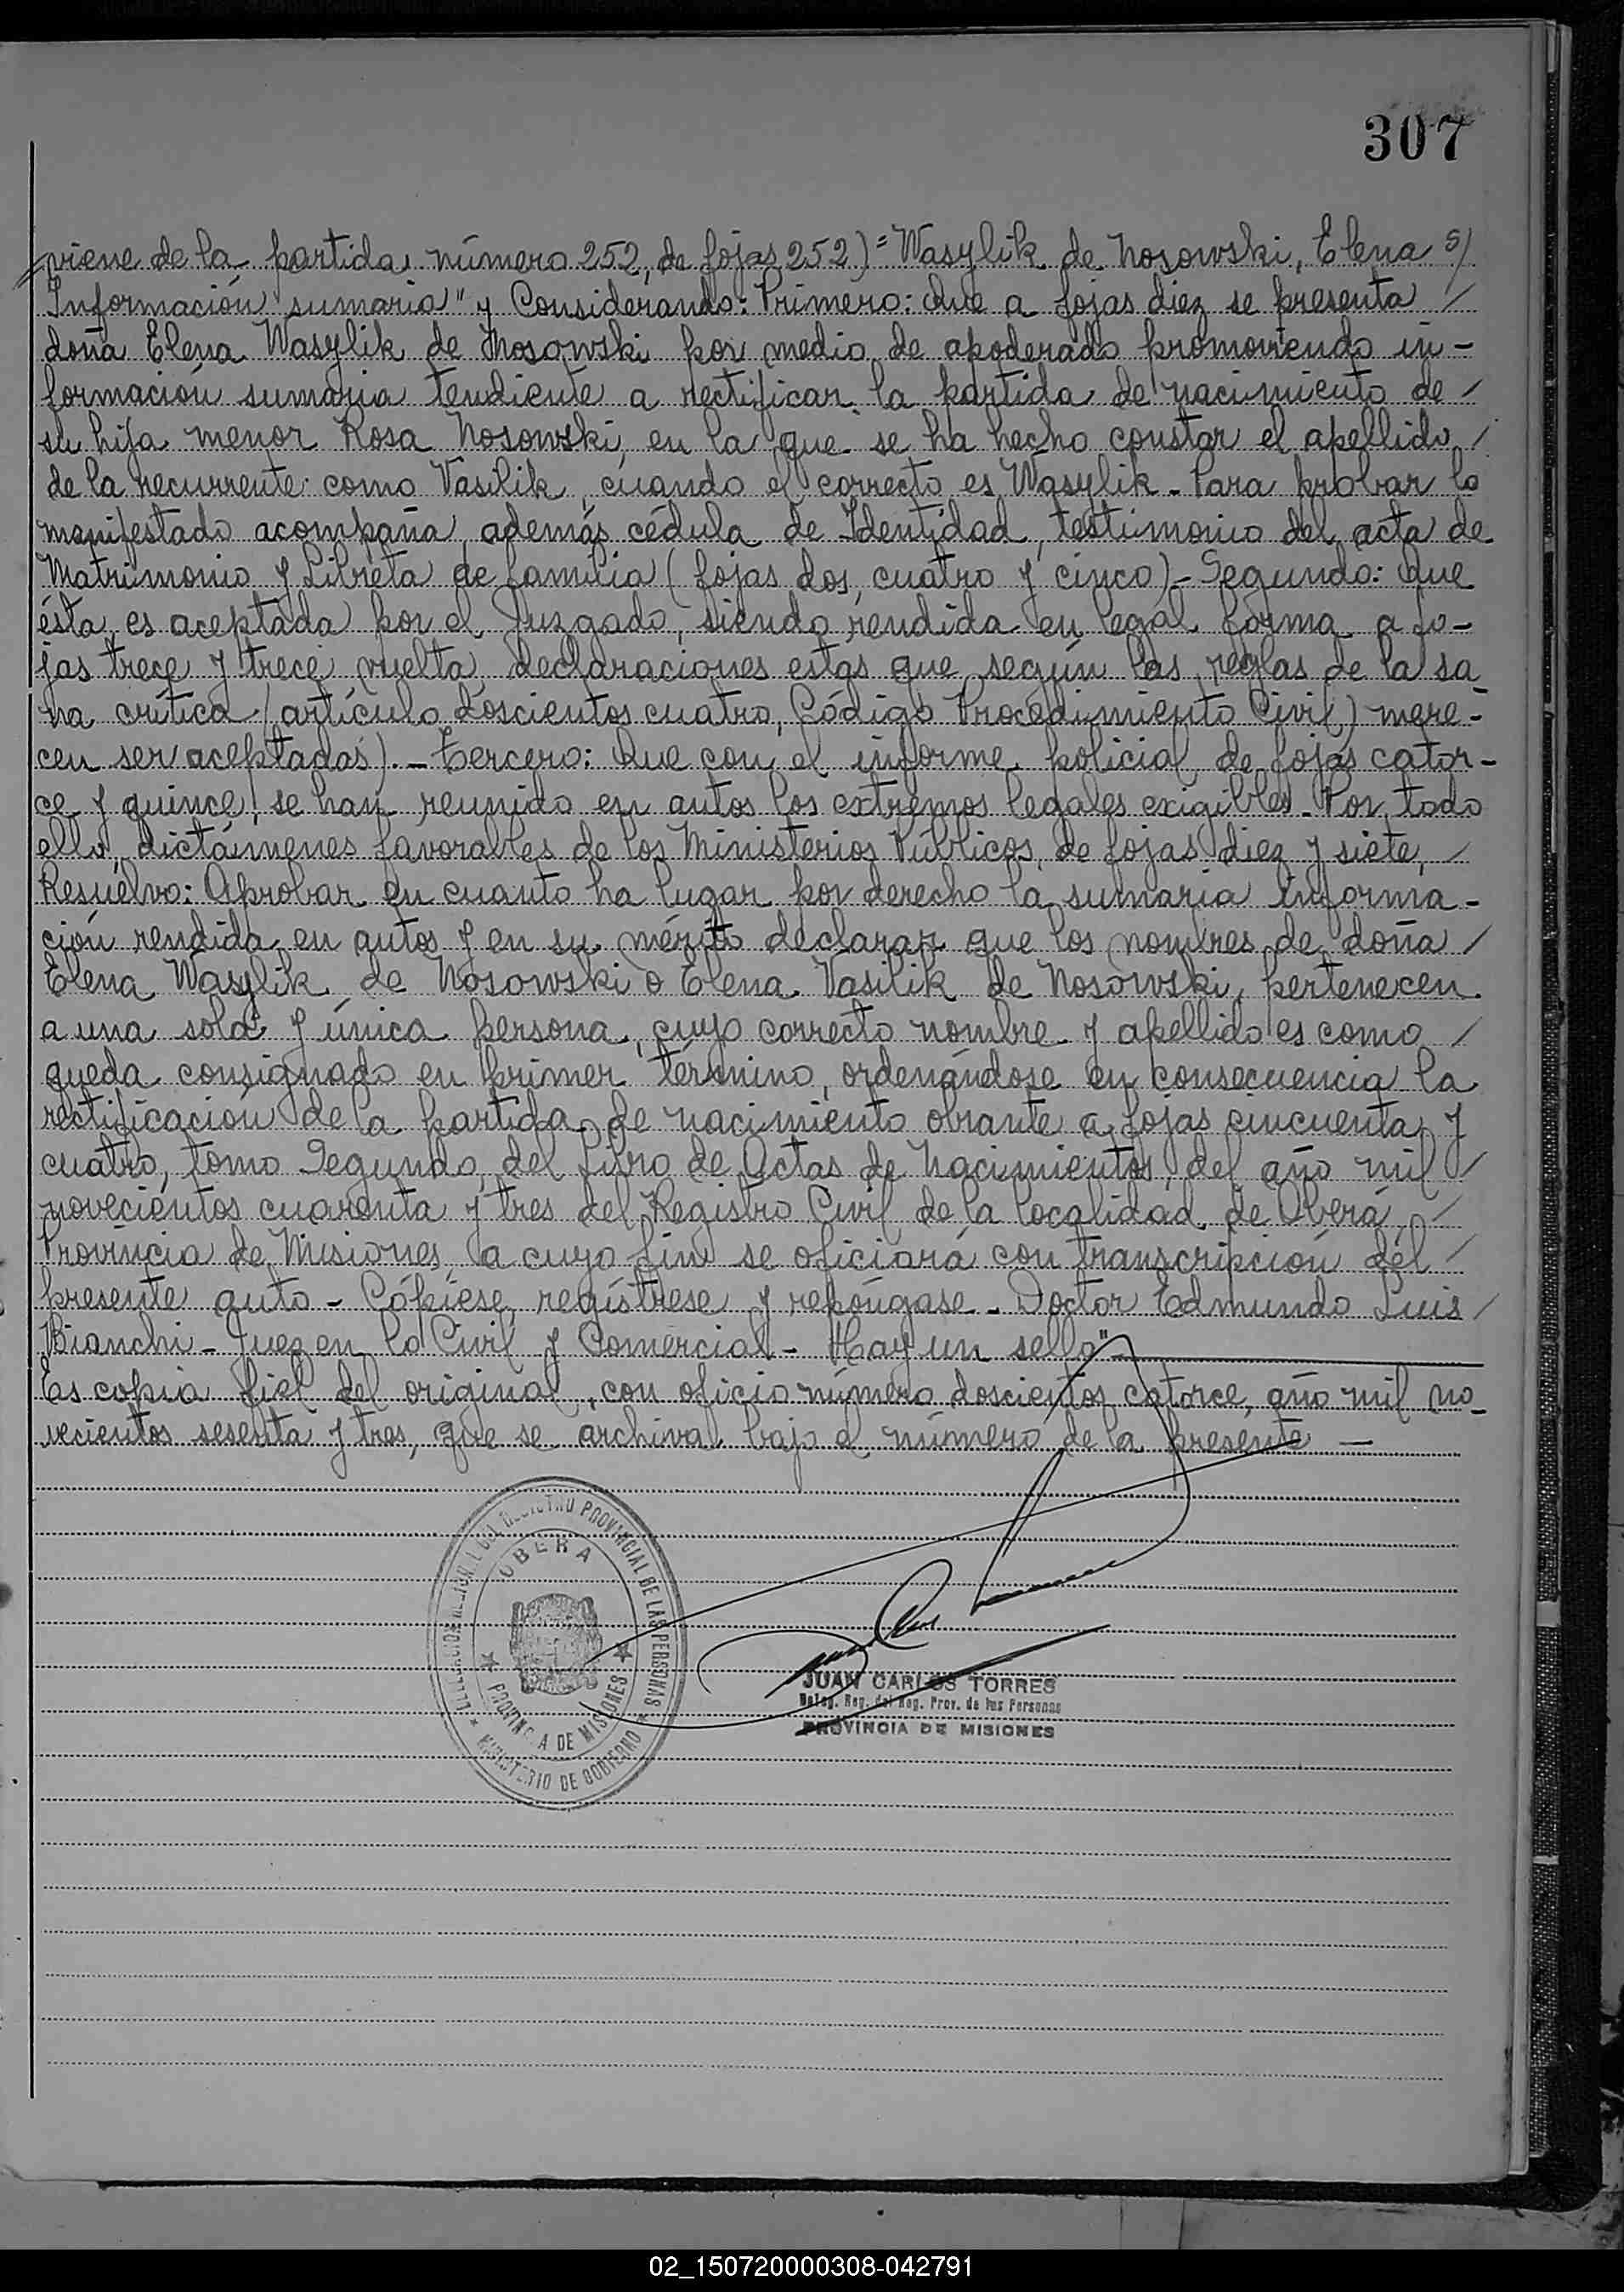 307
viene de la partida número 252, de fojas 252) = Wasylik de Nosowski, Elena s/
Información sumaria" y Considerando: Primero: Que a fojas diez se presenta /
doña Elena Wasylik de Nosowski por medio de apoderado promoviendo in-
formación sumaria tendiente a rectificar la partida de nacimiento de /
su hija menor Rosa Nosowski, en la que se ha hecho constar el apellido /
de la recurrente como Vasilik, cuando el correcto es Wasylik. Para probar lo
manifestado acompaña además cédula de Identidad, testimonio del acta de
Matrimonio y Libreta de familia (fojas dos, cuatro y cinco)- Segundo: Que
ésta es aceptada por el Juzgado, siendo rendida en legal forma a fo-
jas trece y trece vuelta, declaraciones estás que según las reglas de la sa
na crítica (artículo doscientos cuatro, Código Procedimiento Civil) mere-
cen ser aceptadas).- Tercero: Que con el informe policial de fojas cator-
ce y quince, se han reunido en autos los extremos legales exigibles. Por todo
ello, dictámenes favorables de los Ministerios Públicos, de fojas diez y siete, /
Resuelvo: Aprobar en cuanto ha lugar por derecho la sumaria informa-
ción rendida en autos y en su mérito declarar que los nombres de doña /
Elena Wasylik de Nosowski o Elena Vasilik de Nosowski, pertenecen
a una sola y única persona, cuyo correcto nombre y apellido es como /
queda consignado en primer término, ordenándose en consecuencia la
rectificación de la partida de nacimiento obrante a fojas cincuenta y
cuatro, tomo Segundo, del Libro de Actas de Nacimientos, del año mil /
novecientos cuarenta y tres del Registro Civil de la localidad de Oberá, /
Provincia de Misiones, a cuyo fin se oficiará con transcripción del /
presente auto - Cópiese, regístrese y repóngase - Doctor Edmundo Luis /
Bianchi - Juez en lo Civil y Comercial - Hay un sello"
Es copia fiel del original, con oficio número doscientos catorce, año mil no-
vecientos sesenta y tres, que se archiva bajo el número de la presente —
REGISTRO PROVINCIAL DE LAS PERSONAS
OBERA
PROVINCIA DE MISIONES
MINISTERIO DE GOBIERNO
JUAN CARLOS TORRES
Deleg. Reg. del Reg. Prov. de las Personas
PROVINCIA DE MISIONES
02_150720000308-042791